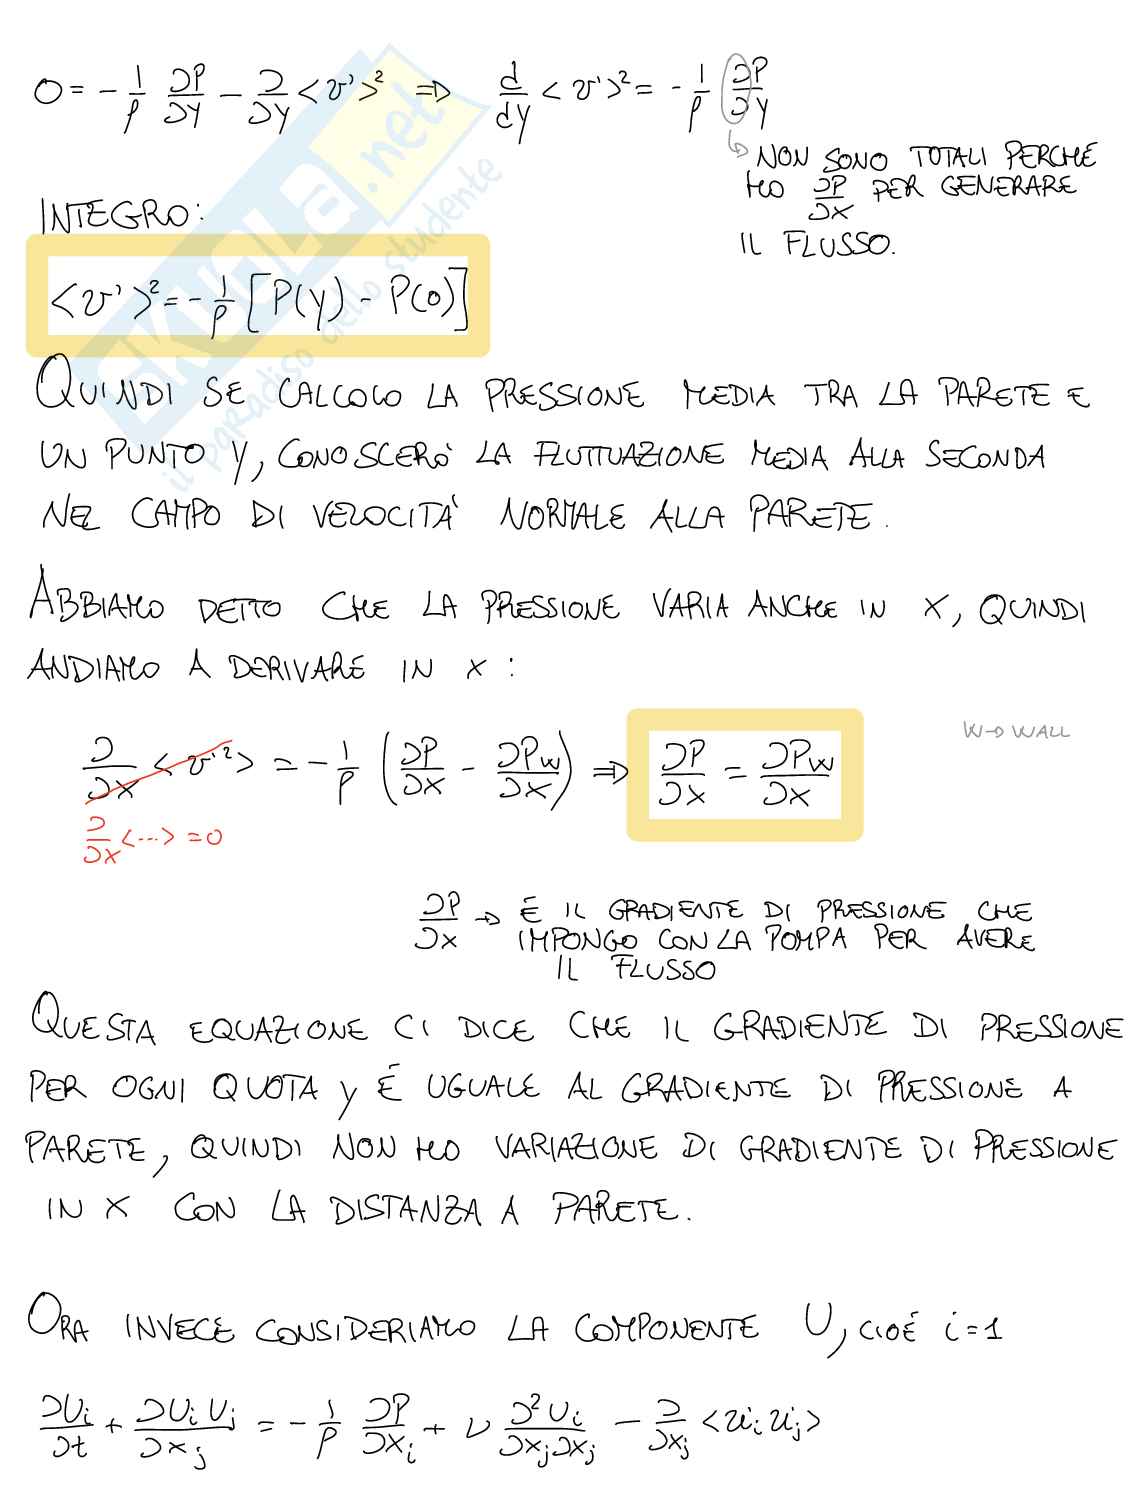 0 = - 1/ρ ∂P/∂y - ∂/∂y <v'>² ⇒ d/dy <v'>² = - 1/ρ ∂P/∂y
↳ NON SONO TOTALI PERCHÉ
HO ∂P/∂x PER GENERARE
IL FLUSSO.
INTEGRO:
<v'>² = - 1/ρ [P(y) - P(0)]
QUINDI SE CALCOLO LA PRESSIONE MEDIA TRA LA PARETE E
UN PUNTO y, CONOSCERÒ LA FLUTTUAZIONE MEDIA ALLA SECONDA
NEL CAMPO DI VELOCITA' NORMALE ALLA PARETE.
ABBIAMO DETTO CHE LA PRESSIONE VARIA ANCHE IN X, QUINDI
ANDIAMO A DERIVARE IN X:
∂/∂x <v'²> = - 1/ρ (∂P/∂x - ∂Pw/∂x) ⇒ ∂P/∂x = ∂Pw/∂x
W→ WALL
∂/∂x <...> = 0
∂P/∂x → É IL GRADIENTE DI PRESSIONE CHE
IMPONGO CON LA POMPA PER AVERE
IL FLUSSO
QUESTA EQUAZIONE CI DICE CHE IL GRADIENTE DI PRESSIONE
PER OGNI QUOTA y É UGUALE AL GRADIENTE DI PRESSIONE A
PARETE, QUINDI NON HO VARIAZIONE DI GRADIENTE DI PRESSIONE
IN X CON LA DISTANZA A PARETE.
ORA INVECE CONSIDERIAMO LA COMPONENTE U, CIOÉ i=1
∂Ui/∂t + ∂UiUj/∂xj = - 1/ρ ∂P/∂xi + ν ∂²Ui/∂xj∂xj - ∂/∂xj <u'i u'j>
skuola.net
il paradiso dello studente